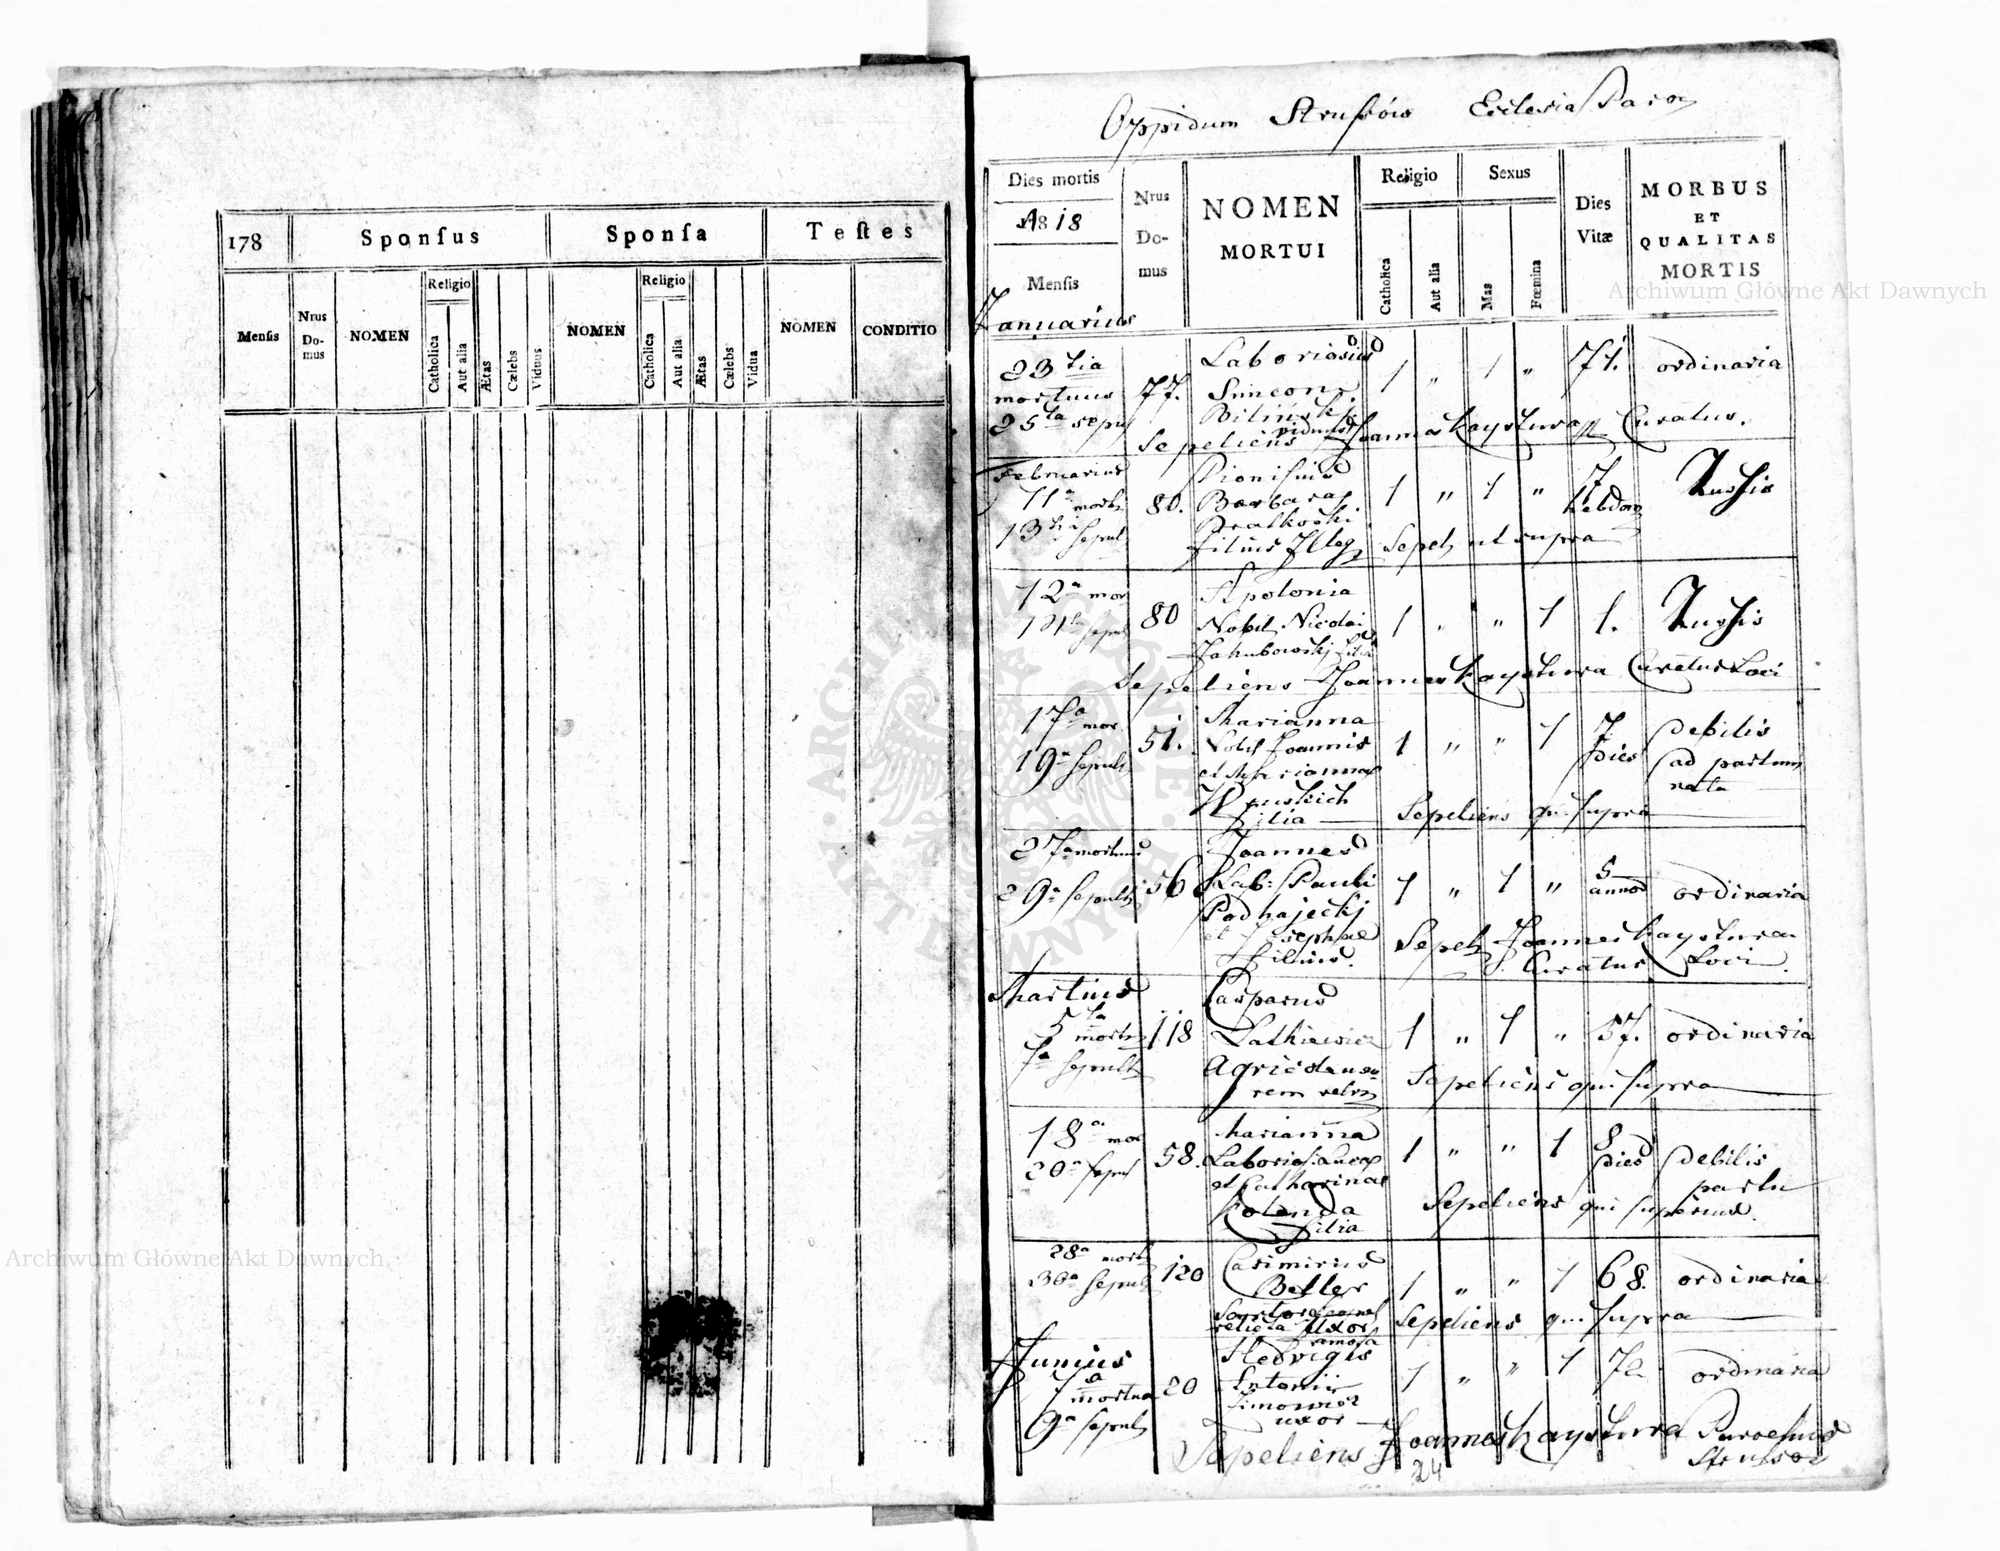 178
Sponſus
Sponſa
Teſtes
Menſis
Nrus Do-mus
NOMEN
Religio
Catholica
Aut alia
Ætas
Cælebs
Viduus
NOMEN
Religio
Catholica
Aut alia
Ætas
Cælebs
Vidua
NOMEN
CONDITIO
Oppidum Strussów Ecclesia
Dies mortis
1818
Menſis
Januarius
Nrus Do-mus
NOMEN MORTUI
Religio
Catholica
Aut alia
Sexus
Mas
Fœmina
Dies Vitæ
MORBUS ET QUALITAS MORTIS
23tia mortuus 77. Laboriosus 1 " 1 " 71. ordinaria
25ta Simeon
Sepeliens Joannes Kaystura Curatus.
Februarius Dionisius
11a 80. Barbara 1 " 1 " 7 Tussis
13tia Sepul filius Illeg Sepel ut supra
12a mor Apolonia
80 Nobil Nicolai 1 " " 1 1. Tussis
Jakubowskj filia
Sepeliens Joannes Kaystura Curatus Loci
17a mor Marianna
51. Nobil Joannis 1 " " 1 7 Dies Debilis
19a Sepult et Mariannae ad partum nata
filia Sepeliens qui supra
27a mortuus Joannes
29a Sepult 56 Lab: Pauli 1 " 1 " 5 annos ordinaria
Podhajeckj
et Josephae Sepel Joannes Kaystura
filius. Curatus Loci
Martius Casparus
5ta 118 Latkiewicz 1 " 1 " 57. ordinaria
7a Sepult
Sepeliens qui supra
18a mor Marianna
20a Sepul 58. Laborios: Lucae 1 " " 1 8 Dies Debilis
et Catharinae partu
Kolenda Sepeliens qui superius.
filia
28a Casimirus
30a Sepul 120 Betler 1 " " 1 68. ordinaria
relicta uxor Sepeliens qui supra
Junius Hedvigis
7a mortua 20 Antonii 1 " " 1 ordinaria
9a Sepul Simowicz
uxor
Sepeliens Joannes Kaystura Parochus
24
Archiwum Główne Akt Dawnych
Archiwum Główne Akt Dawnych
ARCHIWUM GŁÓWNE AKT DAWNYCH